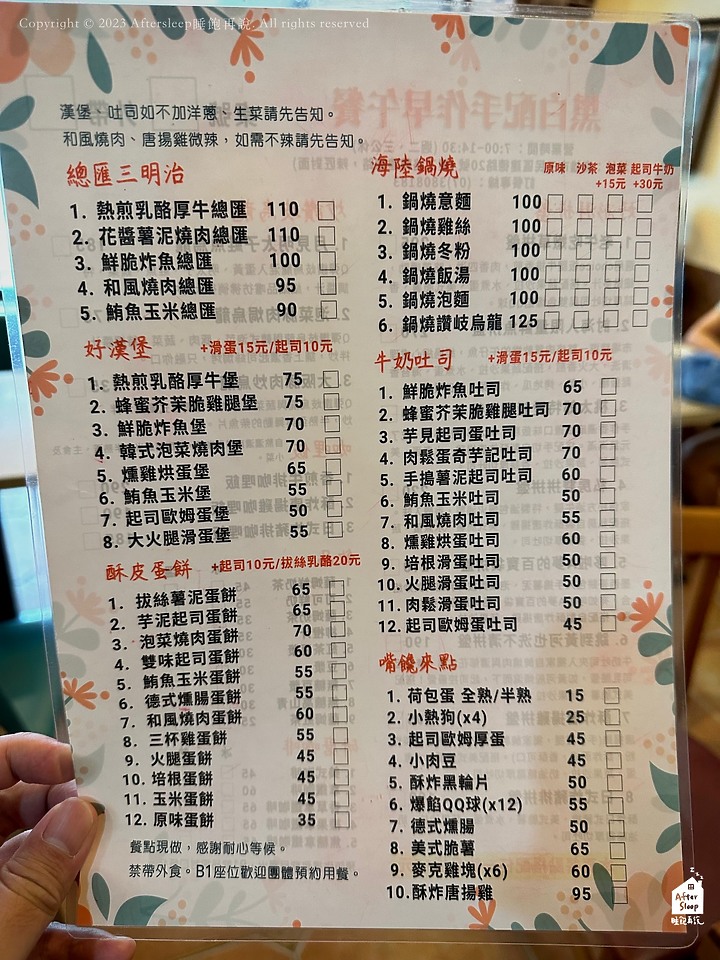 Copyright © 2023 Aftersleep睡飽再說. All rights reserved
漢堡、吐司如不加洋蔥、生菜請先告知。
和風燒肉、唐揚雞微辣，如需不辣請先告知。
總匯三明治
1. 熱煎乳酪厚牛總匯 110
2. 花醬薯泥燒肉總匯 110
3. 鮮脆炸魚總匯 100
4. 和風燒肉總匯 95
5. 鮪魚玉米總匯 90
好漢堡 +滑蛋15元/起司10元
1. 熱煎乳酪厚牛堡 75
2. 蜂蜜芥茉脆雞腿堡 75
3. 鮮脆炸魚堡 70
4. 韓式泡菜燒肉堡 70
5. 燻雞烘蛋堡 65
6. 鮪魚玉米堡 55
7. 起司歐姆蛋堡 50
8. 大火腿滑蛋堡 55
酥皮蛋餅 +起司10元/拔絲乳酪20元
1. 拔絲薯泥蛋餅 65
2. 芋泥起司蛋餅 65
3. 泡菜燒肉蛋餅 70
4. 雙味起司蛋餅 60
5. 鮪魚玉米蛋餅 55
6. 德式燻腸蛋餅 55
7. 和風燒肉蛋餅 60
8. 三杯雞蛋餅 55
9. 火腿蛋餅 45
10. 培根蛋餅 45
11. 玉米蛋餅 45
12. 原味蛋餅 35
餐點現做，感謝耐心等候。
禁帶外食。B1座位歡迎團體預約用餐。
海陸鍋燒 原味 沙茶 泡菜 起司牛奶
+15元 +30元
1. 鍋燒意麵 100
2. 鍋燒雞絲 100
3. 鍋燒冬粉 100
4. 鍋燒飯湯 100
5. 鍋燒泡麵 100
6. 鍋燒讚岐烏龍 125
牛奶吐司 +滑蛋15元/起司10元
1. 鮮脆炸魚吐司 65
2. 蜂蜜芥茉脆雞腿吐司 70
3. 芋見起司蛋吐司 70
4. 肉鬆蛋奇芋記吐司 70
5. 手搗薯泥起司吐司 60
6. 鮪魚玉米吐司 50
7. 和風燒肉吐司 55
8. 燻雞烘蛋吐司 60
9. 培根滑蛋吐司 50
10. 火腿滑蛋吐司 50
11. 肉鬆滑蛋吐司 50
12. 起司歐姆蛋吐司 45
嘴饞來點
1. 荷包蛋 全熟/半熟 15
2. 小熱狗(x4) 25
3. 起司歐姆厚蛋 45
4. 小肉豆 45
5. 酥炸黑輪片 50
6. 爆餡QQ球(x12) 55
7. 德式燻腸 50
8. 美式脆薯 65
9. 麥克雞塊(x6) 60
10. 酥炸唐揚雞 95
After
Sleep
睡飽再說